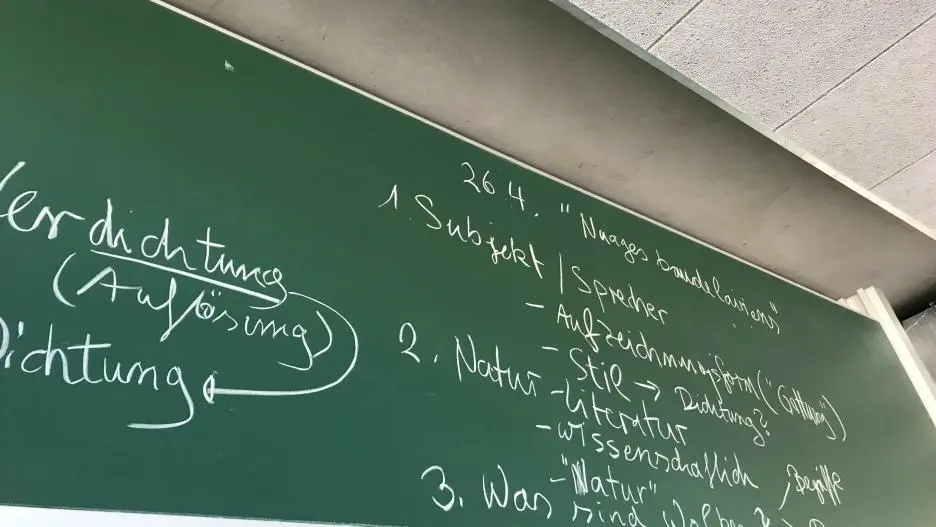 Verdichtung
(Auflösung)
Dichtung
26.4. "Nuages baudelairiens"
1. Subjekt / Sprecher
- Aufzeichnungsform ("Gattung")
- Stil → Dichtung?
2. Natur - Literatur
- wissenschaftlich
- "Natur" , Begriffe
3. Was sind Wolken?